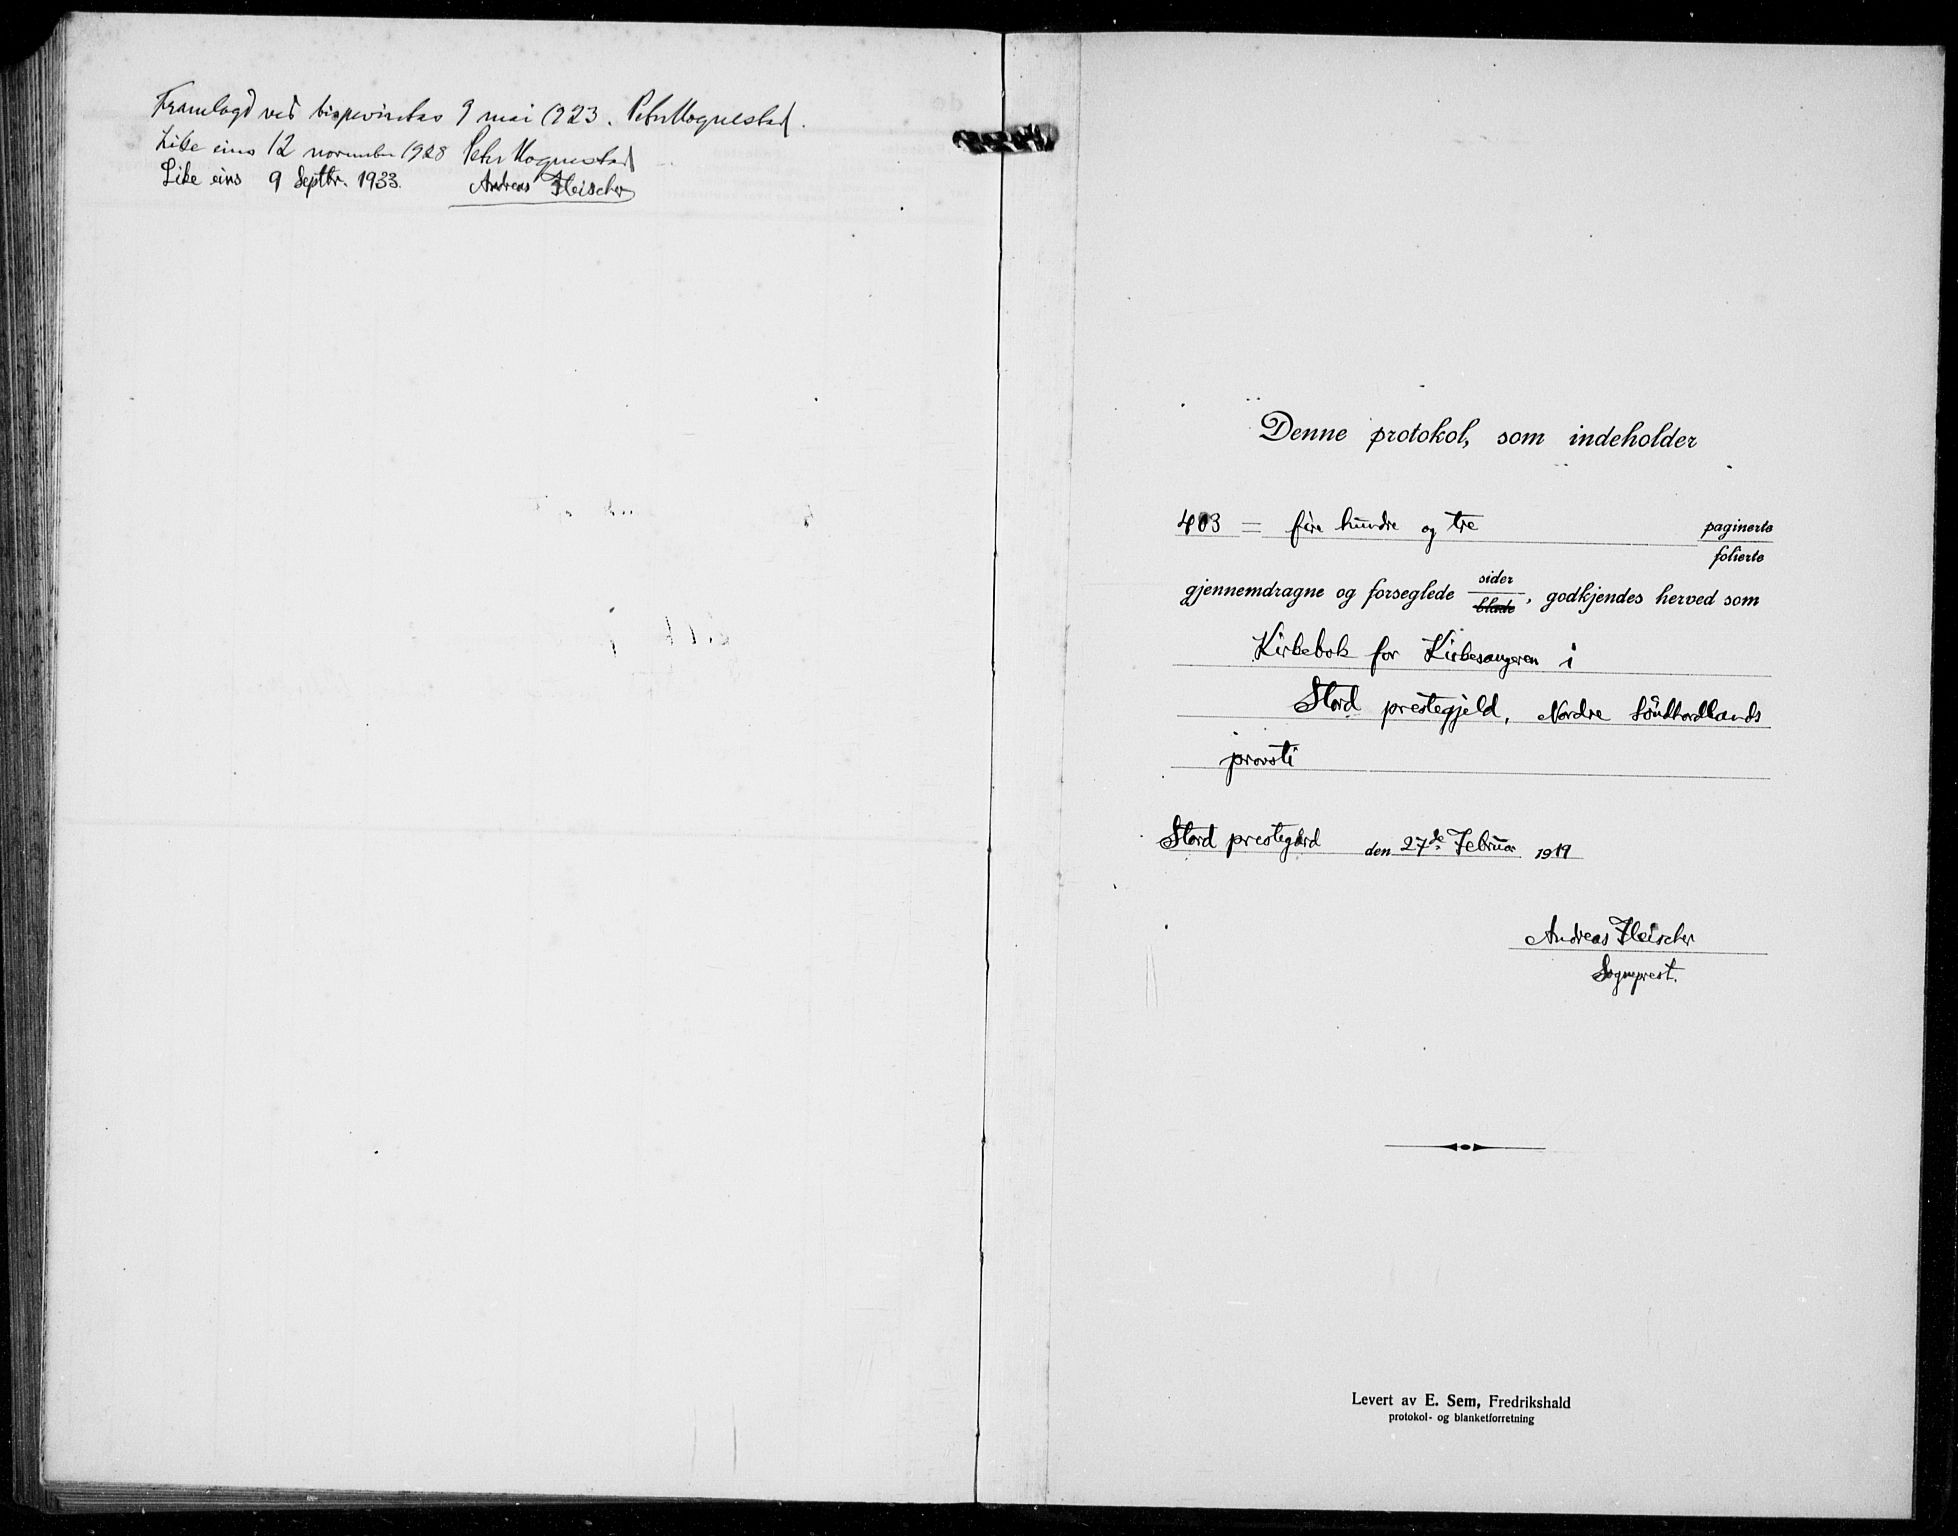 Framlagd ved bispevisitas 9 mai 1923. Peter Hognestad.
Like eins 12 november 1928 Peter Hognestad
Like eins 9 Septbr. 1933. Andreas Fleischer
Denne protokol, som indeholder
403 = fire hundre og tre paginerte
folierte
gjennemdragne og forseglede sider blade, godkjendes herved som
Kirkebok for Kirkesangeren i
Stord prestegjeld, Nordre Söndhordlands
provsti
Stord prestegård den 27de Februar 1919
Andreas Fleischer
Sogneprest.
Levert av E. Sem, Fredrikshald
protokol- og blanketforretning